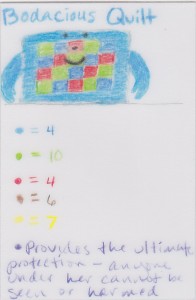 Bodacious Quilt
= 4
= 10
= 4
= 6
= 7
• Provides the ultimate
protection - anyone
under her cannot be
seen or harmed